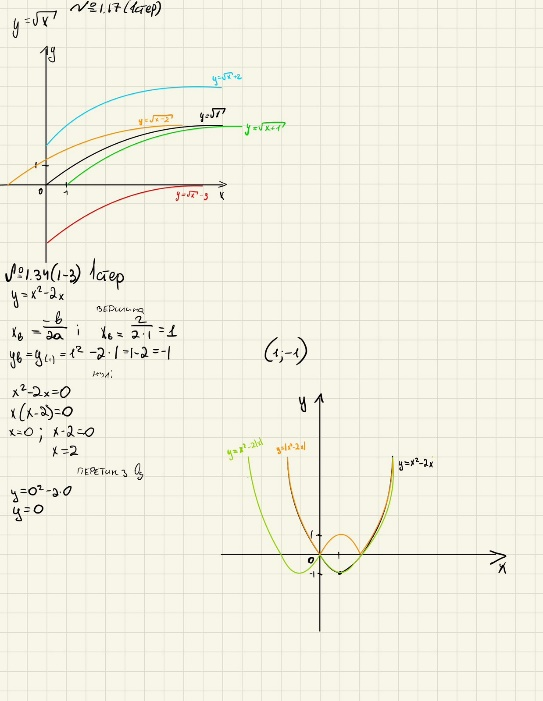 №1.17 (1стер)
y=√x
y
y=√x+2
y=√x-2
y=√x
y=√x+1
1
0
1
x
y=√x-3
№1.34(1-3) 1стер
y=x²-2x
вершина
xв = -b/2a ; xв = 2/2·1 = 1
yв = y(1) = 1²-2·1=1-2=-1
(1;-1)
нулі
x²-2x=0
x(x-2)=0
x=0 ; x-2=0
x=2
перетин з Oy
y=0²-2·0
y=0
y
y=x²-2|x|
y=|x²-2x|
y=x²-2x
1
0
-1
x